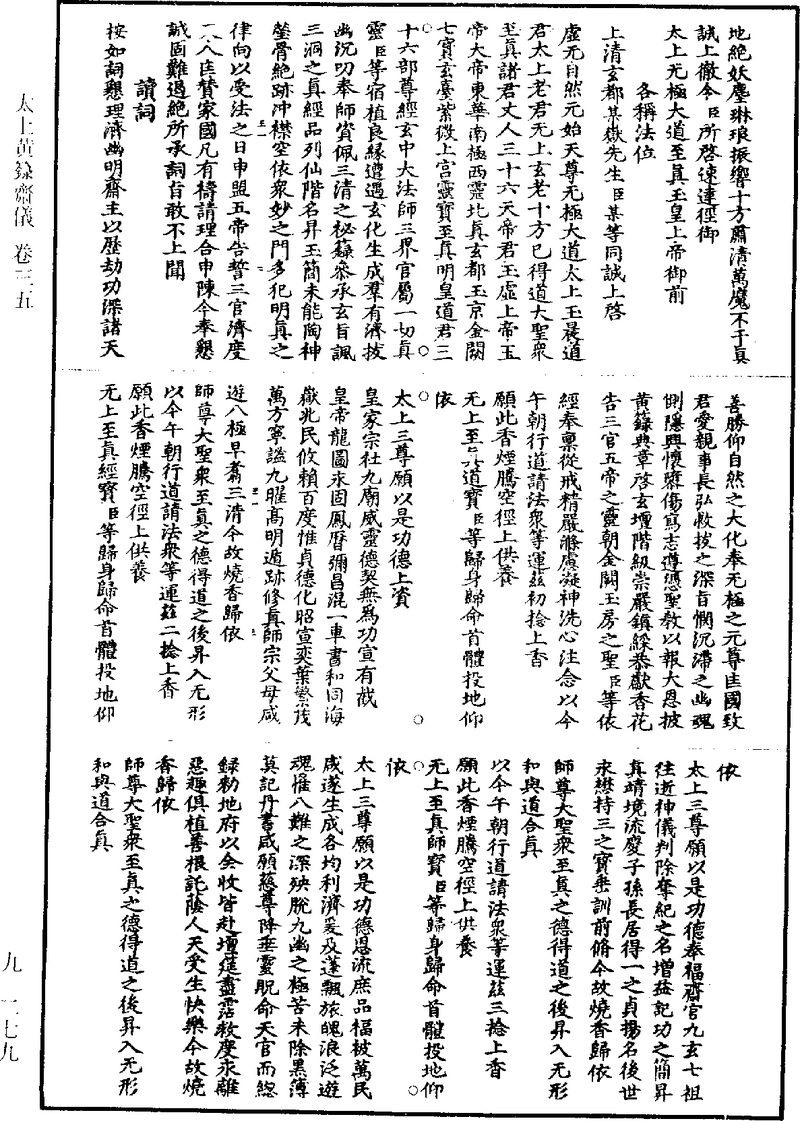 地絶妖塵琳琅振響十方肅清萬魔不干真
誠上徹今臣所啓速達徑御
太上无極大道至真玉皇上帝御前
各稱法位
上清玄都某嶽先生臣某等同誠上啓
虛无自然元始天尊无極大道太上玉晨道
君太上老君无上玄老十方已得道大聖衆
至真諸君丈人三十六天帝君玉虛上帝玉
帝大帝東華南極西靈北真玄都玉京金闕
七寶玄臺紫微上宮靈寶至真明皇道君三
十六部尊經玄中大法師三界官屬一切真
靈臣等宿植良緣遭遇玄化生成羣有濟拔
幽沉叨奉師資佩三清之秘籙叅承玄旨諷
三洞之真經品列仙階名昇玉簡未能陶神
瑩骨絶跡冲襟空依衆妙之門多犯明真之
律向以受法之日申盟五帝告誓三官濟度
人匡賛家國凡有禱請理合申陳今奉懇
誠固難遏絶所承詞旨敢不上聞
讀詞
按如詞懇理濟幽明齋主以歷劫功深諸天
善勝仰自然之大化奉无極之元尊匡國致
君愛親事長弘救拔之深旨憫沉滯之幽魂
惻隱興懷傷寫志遵憑聖教以報大恩披
黄籙典章啓玄壇階級崇嚴鎮綵恭獻香花
告三官五帝之靈朝金闕玉房之聖臣等依
經奉稟從戒精嚴滌慮凝神洗心注念以今
午朝行道請法衆等運兹初捻上香
願此香煙騰空徑上供養
无上至真道寶臣等歸身歸命首體投地仰
依
太上三尊願以是功德上資
皇家宗社九廟威靈德契无爲功宣有截
皇帝龍圖永固鳳曆彌昌混一車書和同海
嶽兆民攸賴百度惟貞德化昭宣奕葉繁茂
萬方寧謐九曜髙明遁跡修真師宗父母咸
遊八極早翥三清今故燒香歸依
師尊大聖衆至真之德得道之後昇入无形
以今午朝行道請法衆等運兹二捻上香
願此香煙騰空徑上供養
无上至真經寶臣等歸身歸命首體投地仰
依
太上三尊願以是功德奉福齋官九玄七祖
往逝神儀判除奪紀之名增益記功之簡昇
真靖境流慶子孫長居得一之貞揚名後世
永懋持三之寶垂訓前脩今故燒香歸依
師尊大聖衆至真之德得道之後昇入无形
和與道合真
以今午朝行道請法衆等運兹三捻上香
願此香煙騰空徑上供養
无上至真師寶臣等歸身歸命首體投地仰
依
太上三尊願以是功德恩流庶品福被萬民
咸遂生成各均利濟爰及蓬飄旅魄浪泛遊
魂罹八難之深殃脫九幽之極苦未除黑簿
莫記丹書咸願慈尊降垂靈貺命天官而
録勑地府以会收皆赴壇筵盡霑救度永離
惡趣俱植善根託蔭人天受生快樂今故燒
香歸依
師尊大聖衆至真之德得道之後昇入无形
和與道合真
太上黄籙齋儀 卷三五
九 一七九